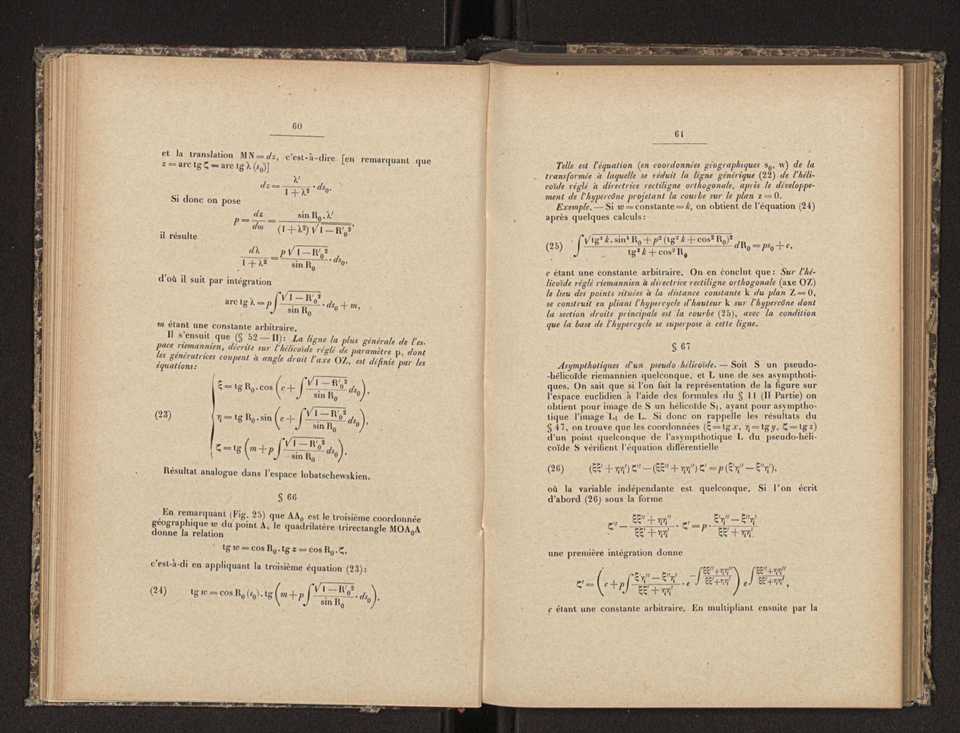 60
et la translation MN = dz, c'est-à-dire [en remarquant que
z = arc tg ζ = arc tg λ (s₀)]
dz = λ' / (1 + λ²) · ds₀.
Si donc on pose
p = dz / dm = sin R₀ . λ' / ((1 + λ²) √(1 — R'₀²)),
il résulte
dλ / (1 + λ²) = p √(1 — R'₀²) / sin R₀ · ds₀,
d'où il suit par intégration
arc tg λ = p ∫ √(1 — R'₀²) / sin R₀ · ds₀ + m,
m étant une constante arbitraire.
Il s'ensuit que (§ 52 — II): La ligne la plus générale de l'es-
pace riemannien, décrite sur l'hélicoïde réglé de paramètre p, dont
les génératrices coupent à angle droit l'axe OZ, est définie par les
équations:
ξ = tg R₀ . cos (c + ∫ √(1 — R'₀²) / sin R₀ ds₀),
(23) η = tg R₀ . sin (c + ∫ √(1 — R'₀²) / sin R₀ ds₀),
ζ = tg (m + p ∫ √(1 — R'₀²) / sin R₀ ds₀).
Résultat analogue dans l'espace lobatschewskien.
§ 66
En remarquant (Fig. 25) que AA₀ est le troisième coordonnée
géographique w du point A, le quadrilatère trirectangle MOA₀A
donne la relation
tg w = cos R₀ . tg z = cos R₀ . ζ,
c'est-à-di en appliquant la troisième équation (23):
(24) tg w = cos R₀ (s₀) . tg (m + p ∫ √(1 — R'₀²) / sin R₀ · ds₀).
61
Telle est l'équation (en coordonnées géographiques s₀, w) de la
transformée à laquelle se réduit la ligne générique (22) de l'héli-
coïde réglé à directrice rectiligne orthogonale, après le développe-
ment de l'hypercône projetant la courbe sur le plan z = 0.
Exemple. — Si w = constante = k, on obtient de l'équation (24)
après quelques calculs:
(25) ∫ √(tg² k . sin⁴ R₀ + p² (tg² k + cos² R₀)²) / (tg² k + cos² R₀) dR₀ = ps₀ + c,
c étant une constante arbitraire. On en conclut que: Sur l'hé-
licoïde réglé riemannien à directrice rectiligne orthogonale (axe OZ)
le lieu des points situées à la distance constante k du plan Z = 0,
se construit en pliant l'hypercycle d'hauteur k sur l'hypercône dont
la section droite principale est la courbe (25), avec la condition
que la base de l'hypercycle se superpose à cette ligne.
§ 67
Asymphotiques d'un pseudo hélicoïde. — Soit S un pseudo-
-hélicoïde riemannien quelconque, et L une de ses asymptoti-
ques. On sait que si l'on fait la représentation de la figure sur
l'espace euclidien à l'aide des formules du § 11 (II Partie) on
obtient pour image de S un hélicoïde S₁, ayant pour asympto-
tique l'image L₁ de L. Si donc on rappelle les résultats du
§ 47, on trouve que les coordonnées (ξ = tg x, η = tg y, ζ = tg z)
d'un point quelconque de l'asymptotique L du pseudo-héli-
coïde S vérifient l'équation différentielle
(26) (ξξ' + ηη') ζ'' — (ξξ'' + ηη'') ζ' = p (ξ'η'' — ξ''η'),
où la variable indépendante est quelconque. Si l'on écrit
d'abord (26) sous la forme
ζ'' — (ξξ'' + ηη'') / (ξξ' + ηη') · ζ' = p · (ξ'η'' — ξ''η') / (ξξ' + ηη')
une première intégration donne
ζ' = (c + p ∫ (ξ'η'' — ξ''η') / (ξξ' + ηη') · e^(— ∫ (ξξ'' + ηη'') / (ξξ' + ηη'))) e^(∫ (ξξ'' + ηη'') / (ξξ' + ηη')),
c étant une constante arbitraire. En multipliant ensuite par la